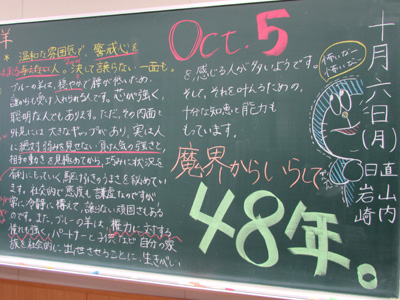 十月六日(月)
直 山内
日 岩崎
怖いなー
怖いなー
Oct. 5
羊
* 温和な雰囲気で、警戒心を
与えない人。決して譲らない一面も。
ブルーの羊は、穏やかで腰が低いため、
誰からも受け入れられる人です。芯が強く、
聡明な人でもあります。ただ、その内面と
外見には大きなギャップがあり、実は人
に絶対弱みを見せない負けん気の強さと、
相手の動きを見極めてから、巧みに状況を
有利にもっていく駆け引きのうまさを秘めてい
ます。社会的で態度も謙虚なのですが、
常に冷静に構えて、譲らない頑固さもある
のです。また、ブルーの羊は、権力に対する
憧れも強く、パートナーと子供など自分の家
族を社会的に出世させることに、生きがい
を感じる人が多いようです。
そして、それを叶えるための、
十分な知恵と能力も
もっています。
魔界からいらして
48年。